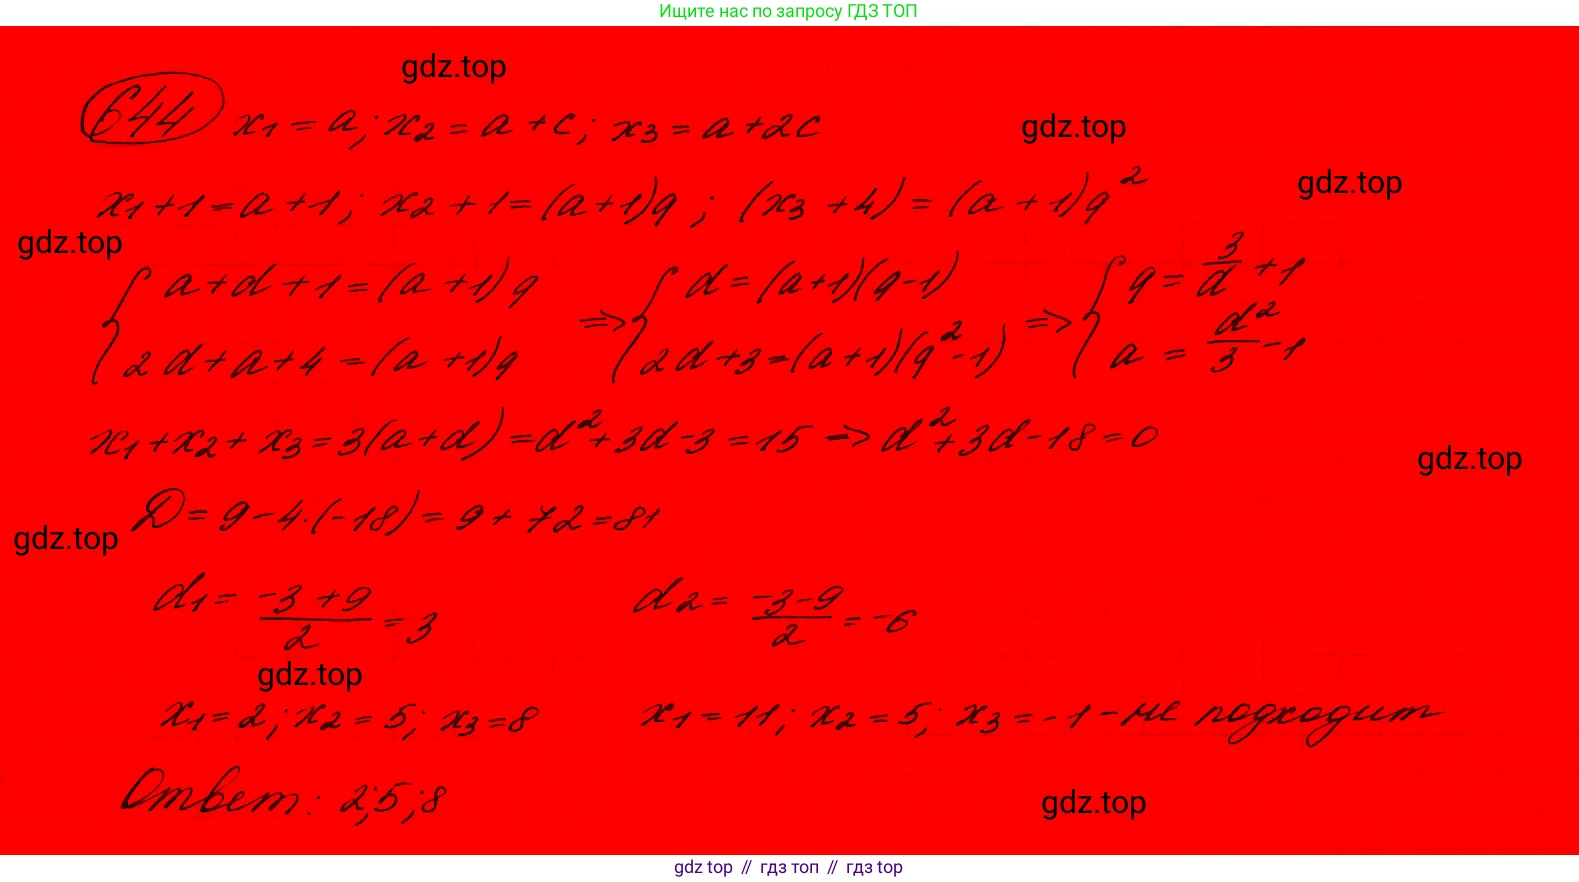 Ищите нас по запросу ГДЗ ТОП
gdz.top
644 x₁ = a; x₂ = a + c; x₃ = a + 2c
gdz.top
gdz.top
x₁ + 1 = a + 1; x₂ + 1 = (a + 1)q; (x₃ + 4) = (a + 1)q²
gdz.top
{ a + d + 1 = (a + 1)q => { d = (a+1)(q-1) => { q = 3/d + 1
{ 2d + a + 4 = (a + 1)q { 2d + 3 = (a+1)(q²-1) { a = d²/3 - 1
x₁ + x₂ + x₃ = 3(a + d) = d² + 3d - 3 = 15 => d² + 3d - 18 = 0
gdz.top
D = 9 - 4·(-18) = 9 + 72 = 81
gdz.top
d₁ = (-3 + 9)/2 = 3 d₂ = (-3 - 9)/2 = -6
gdz.top
x₁ = 2; x₂ = 5; x₃ = 8 x₁ = 11; x₂ = 5; x₃ = -1 - не подходит
Ответ: 2; 5; 8
gdz.top
gdz top // гдз топ // гдз top